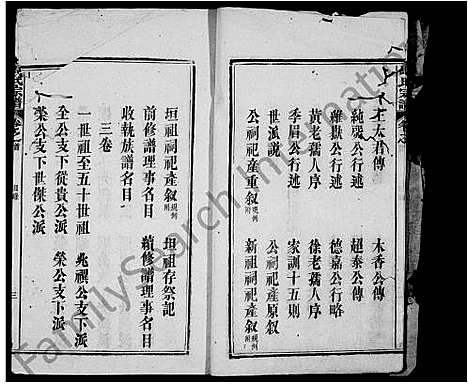 王太君傳
木香公傳
純磵公行述
超泰公傳
維嶽公行述
德嘉公行略
黃老孺人序
徐老孺人序
季眉公行述
家訓十五則
世派說
公祠祀產原叙
公祠祀產重叙 規例附
新祖祠祀產叙 規例附
垣祖祠祀產叙 規例附
垣祖存祭記
前修譜理事名目
續修譜理事名目
收執族譜名目
三卷
一世祖至五十世祖
兆禩公支下派
全公支下從貴公派
榮公支下派
榮公支下世傑公派
目錄
三
FamilySearch International